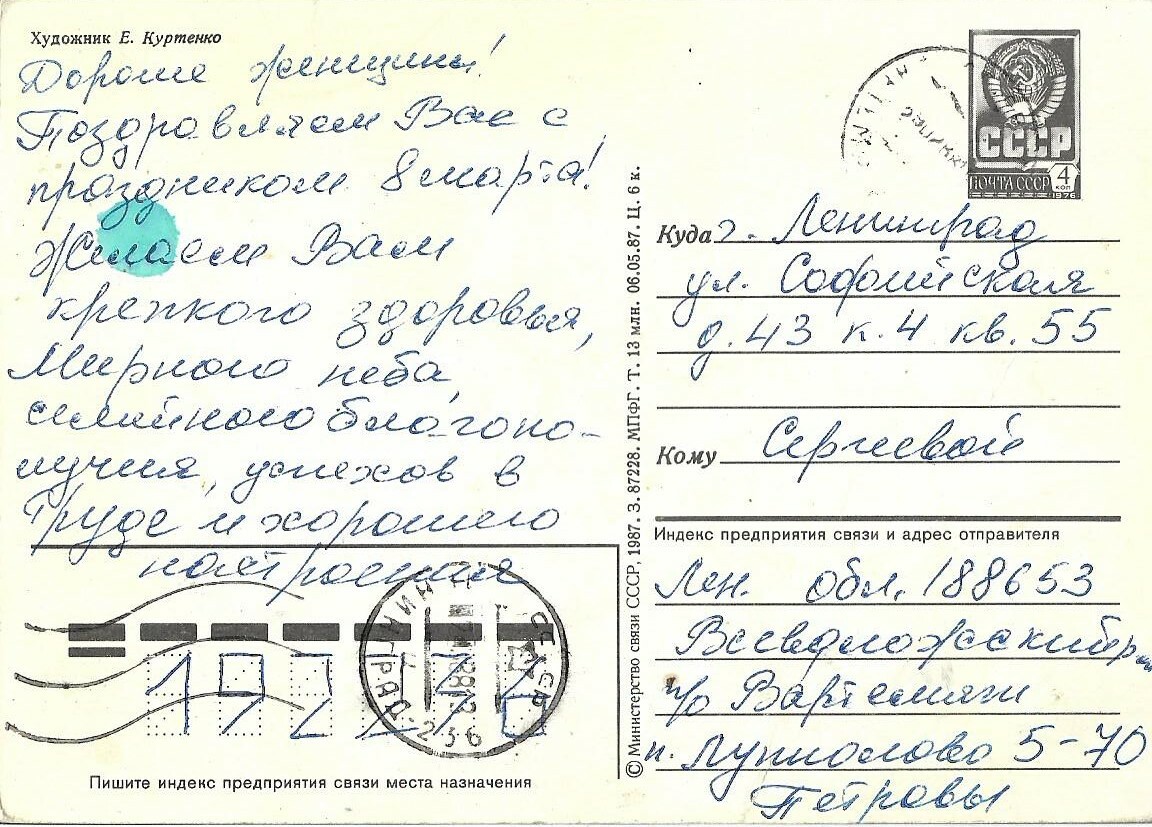 Художник Е. Куртенко
Дорогие женщины!
Поздравляем Вас с
праздником 8 марта!
Желаем Вам
крепкого здоровья,
Мирного неба,
семейного благопо-
лучия, успехов в
Труде и хорошего
настроения
СССР
4
коп
ПОЧТА СССР
1976
Куда г. Ленинград
ул. Софийская
д. 43 к. 4 кв. 55
Кому Сергеевой
Индекс предприятия связи и адрес отправителя
Лен. обл. 188653
Всеволожский р-н
п/о Вартемяги
п. Лупполово 5-70
Петровы
© Министерство связи СССР, 1987. З. 87228. МПФГ. Т. 13 млн. 06.05.87. Ц. 6 к.
ЛЕНИНГРАД-236
СССР
Пишите индекс предприятия связи места назначения